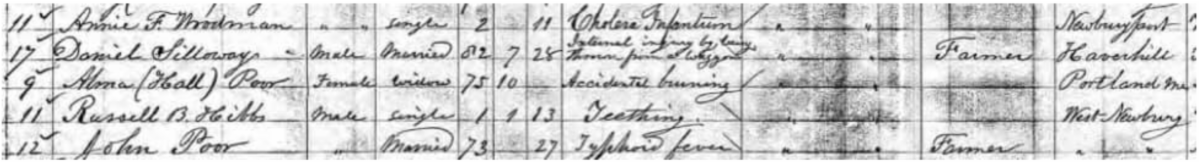 11 Annie F. Woodman " " single 2 11 Cholera Infantum " " Newburyport
17 Daniel Silloway Male Married 82 7 28 Internal injury by being thrown from a waggon " " Farmer Haverhill
9 Alma (Hall) Poor Female widow 75 10 Accidental burning " " Portland Me
11 Russell B. Hibbs Male single 1 1 13 Teething " " West Newbury
12 John Poor " Married 73 27 Typhoid fever " " Farmer " "